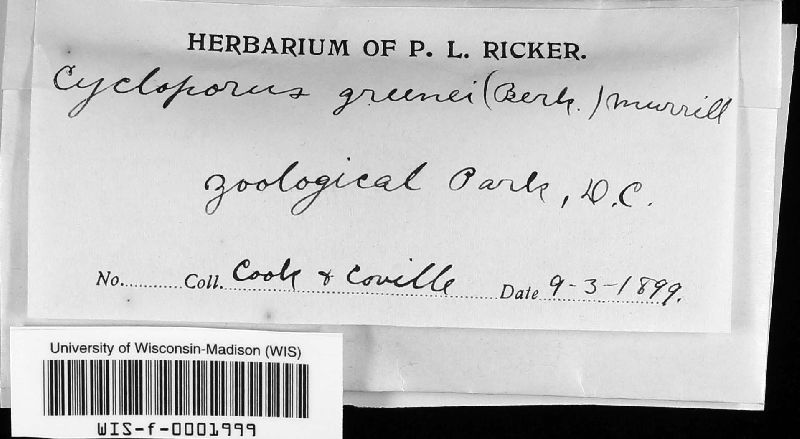 HERBARIUM OF P. L. RICKER.
Cycloporus greenei (Berk.) Murrill
Zoological Park, D.C.
No. Coll. Cook & Coville Date 9-3-1899.
University of Wisconsin-Madison (WIS)
WIS-f-0001999